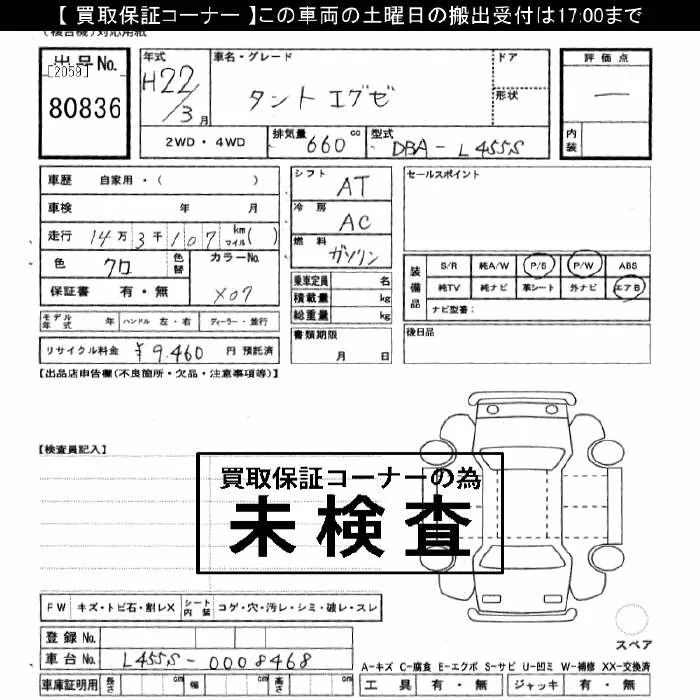 【 買取保証コーナー 】この車両の土曜日の搬出受付は17:00まで
出品No.
[2059]
80836
年式
H22/3月
車名・グレード
タント エグゼ
ドア
形状
評価点
―
内装
2WD・4WD
排気量 660 cc
型式 DBA-L455S
車歴 自家用・( )
車検 年 月
走行 14万3千107 km マイル( )
色 クロ 色替
カラーNo. X07
保証書 有・無
シフト AT
冷房 AC
燃料 ガソリン
セールスポイント
装備品
S/R 純A/W P/S P/W ABS
純TV 純ナビ 革シート 外ナビ エアB
ナビ型番:
乗車定員 名
積載量 kg
総重量 kg
モデル年式 年 ハンドル 左・右 ディーラー・並行
書類期限
月 日
後日品
リサイクル料金 ¥9,460 円 預託済
【出品店申告欄(不良箇所・欠品・注意事項等)】
【検査員記入】
買取保証コーナーの為
未検査
FW キズ・トビ石・割レX シート内装 コゲ・穴・汚レ・シミ・破レ・スレ
スペア
登録No.
車台No. L455S-0008468
A-キズ C-腐食 E-エクボ S-サビ U-凹ミ W-補修 XX-交換済
車庫証明用 長さ cm 幅 cm 高さ cm
工具 有・無 ジャッキ 有・無